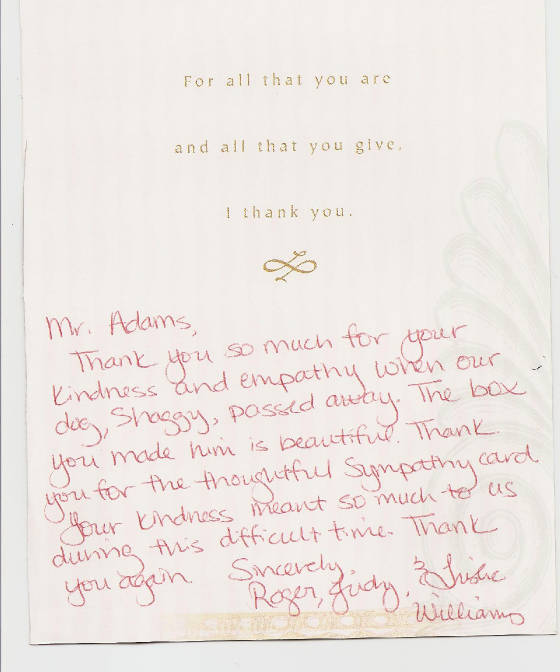 For all that you are
and all that you give,
I thank you.
Mr. Adams,
Thank you so much for your
kindness and empathy when our
dog, Shaggy, passed away. The box
you made him is beautiful. Thank
you for the thoughtful Sympathy card.
Your kindness meant so much to us
during this difficult time. Thank
you again. Sincerely,
Roger, Judy, &
Williams